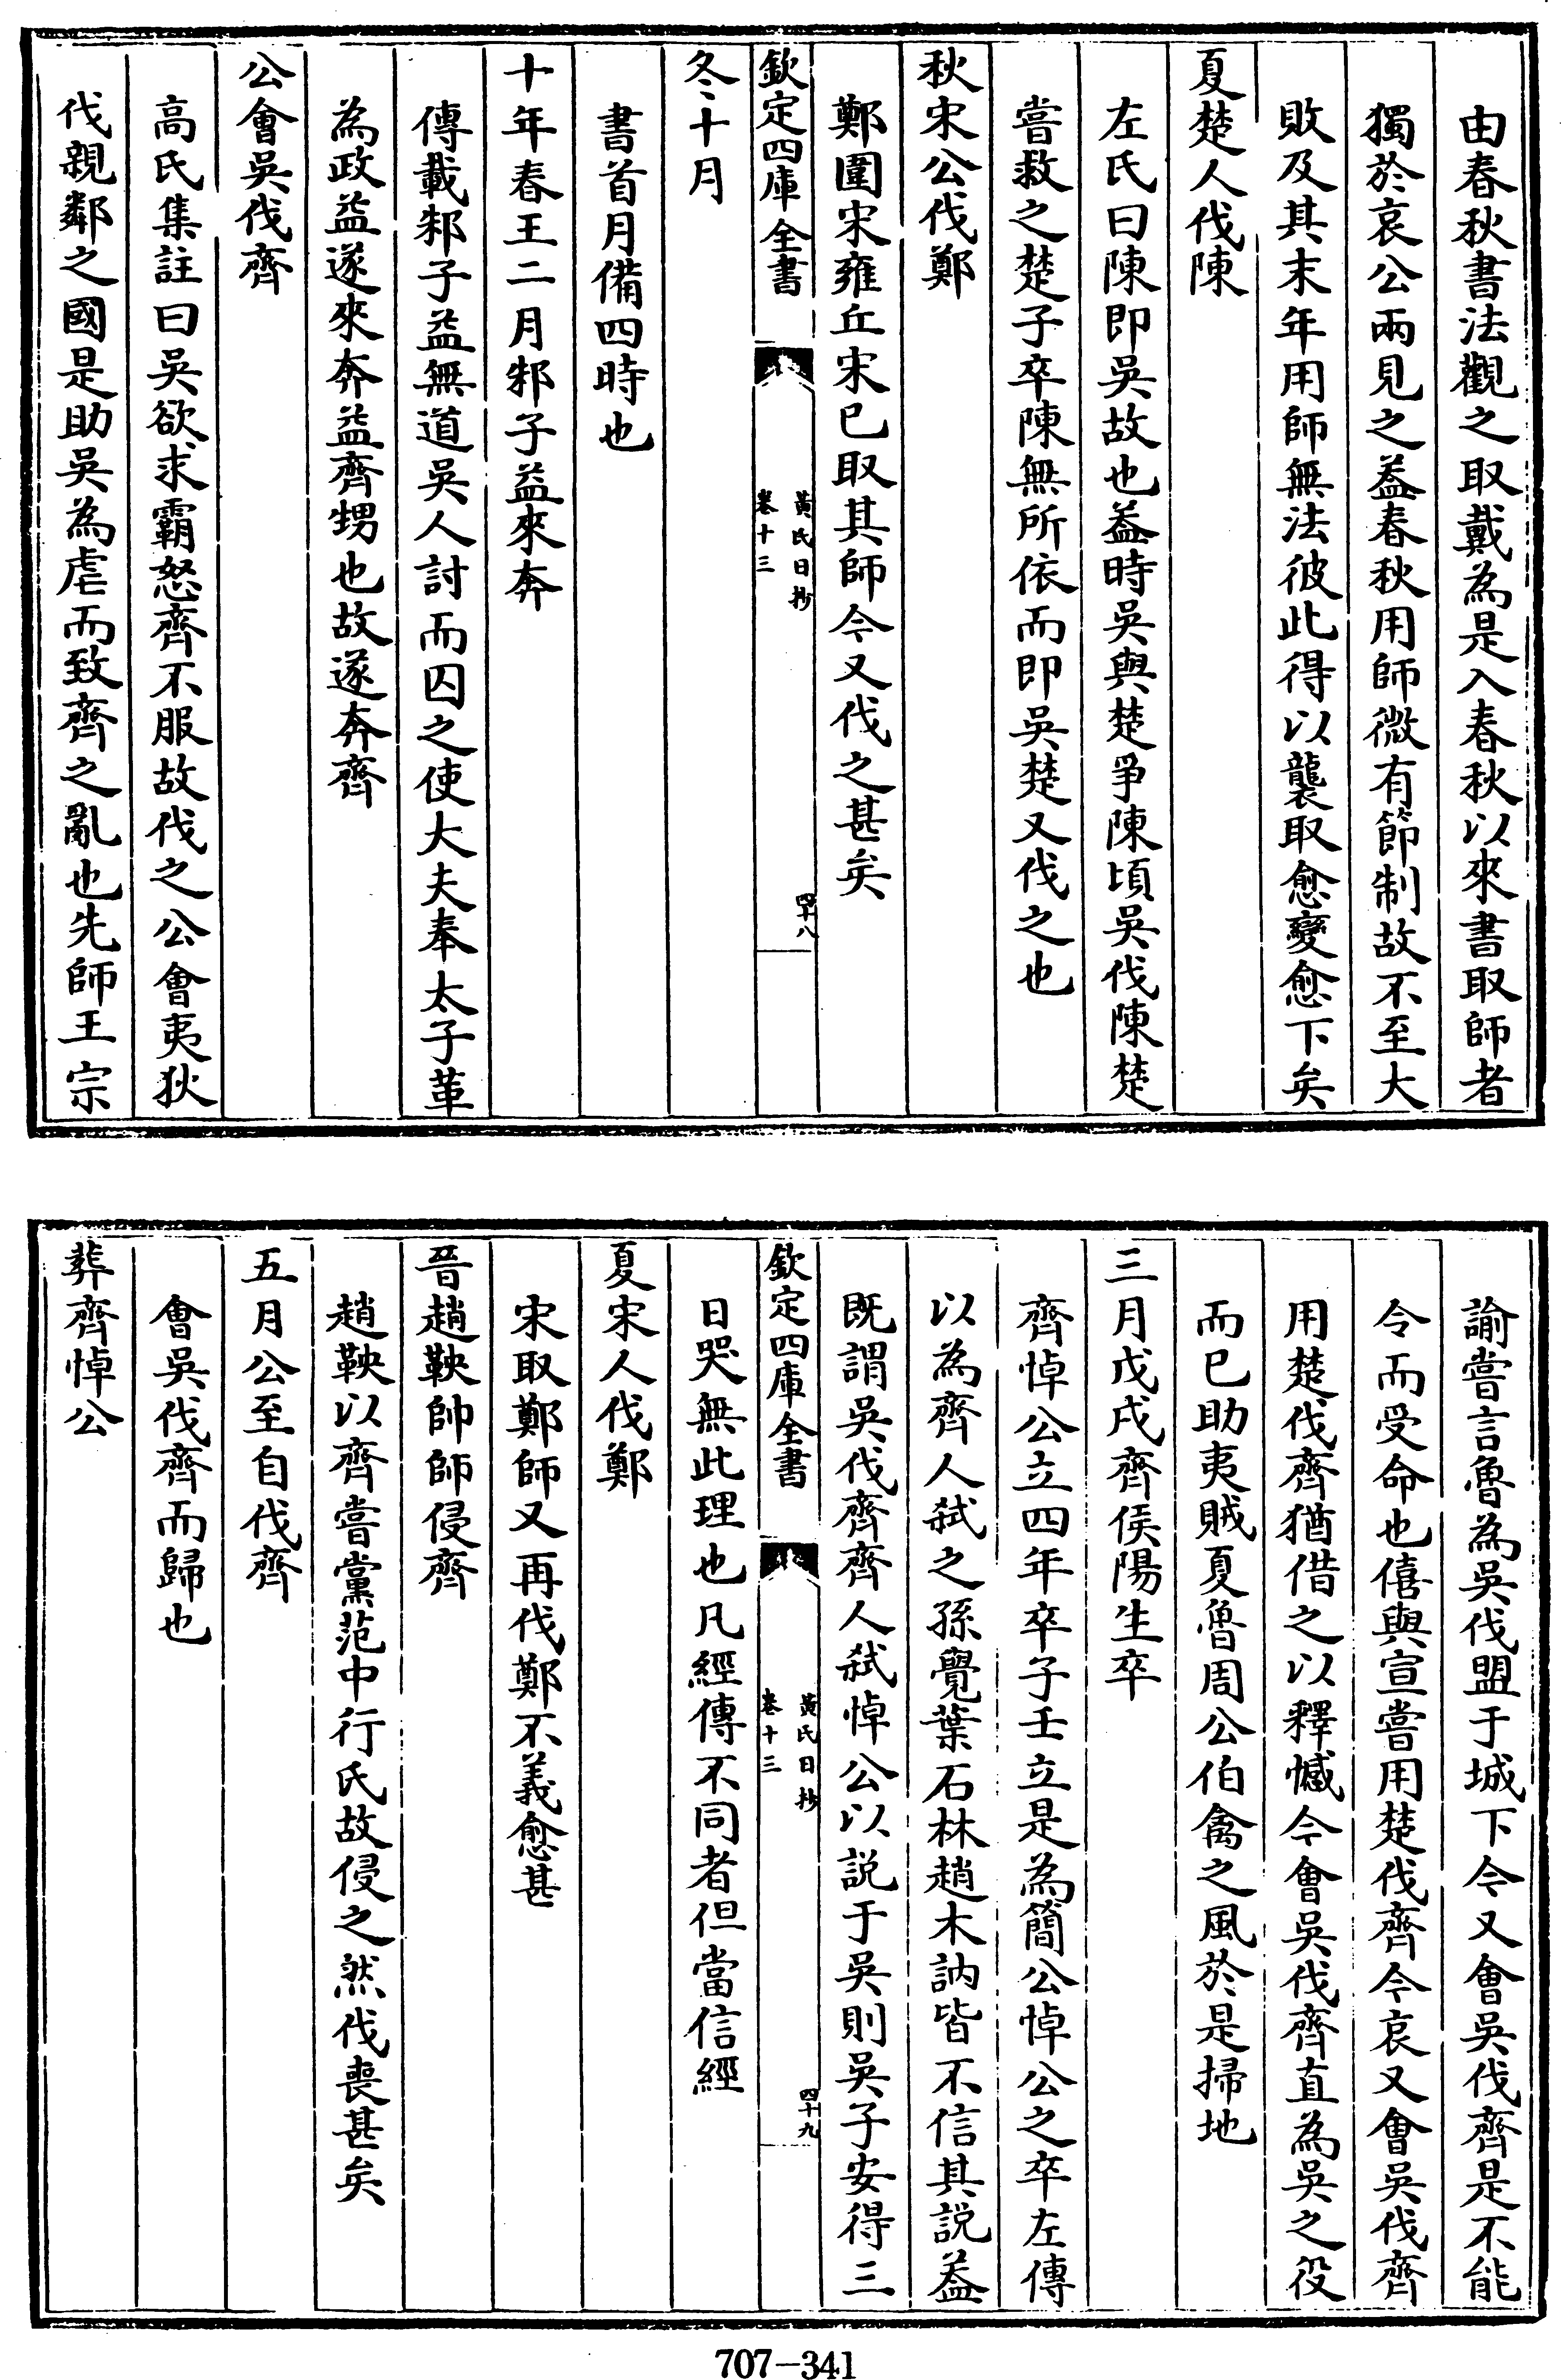 由春秋書法觀之取戴為是入春秋以來書取師者
獨於哀公兩見之葢春秋用師微有節制故不至大
敗及其末年用師無法彼此得以襲取愈變愈下矣
夏楚人伐陳
左氏曰陳即吳故也葢時吳與楚爭陳頃吳伐陳楚
嘗救之楚子卒陳無所依而即吳楚又伐之也
秋宋公伐鄭
鄭圍宋雍丘宋已取其師今又伐之甚矣
欽定四庫全書
黃氏日抄
卷十三
四十八
冬十月
書首月備四時也
十年春王二月邾子益來奔
傳載邾子益無道吳人討而囚之使大夫奉太子革
為政益遂來奔益齊甥也故遂奔齊
公會吳伐齊
高氏集註曰吳欲求霸怒齊不服故伐之公會夷狄
伐親鄰之國是助吳為虐而致齊之亂也先師王宗
諭嘗言魯為吳伐盟于城下今又會吳伐齊是不能
令而受命也僖與宣嘗用楚伐齊今哀又會吳伐齊
用楚伐齊猶借之以釋憾今會吳伐齊直為吳之役
而已助夷賊夏魯周公伯禽之風於是掃地
三月戊戌齊侯陽生卒
齊悼公立四年卒子壬立是為簡公悼公之卒左傳
以為齊人弒之孫覺葉石林趙木訥皆不信其說葢
既謂吳伐齊齊人弒悼公以說于吳則吳子安得三
欽定四庫全書
黃氏日抄
卷十三
四十九
日哭無此理也凡經傳不同者但當信經
夏宋人伐鄭
宋取鄭師又再伐鄭不義愈甚
晉趙鞅帥師侵齊
趙鞅以齊嘗黨范中行氏故侵之然伐喪甚矣
五月公至自伐齊
會吳伐齊而歸也
葬齊悼公
707-341